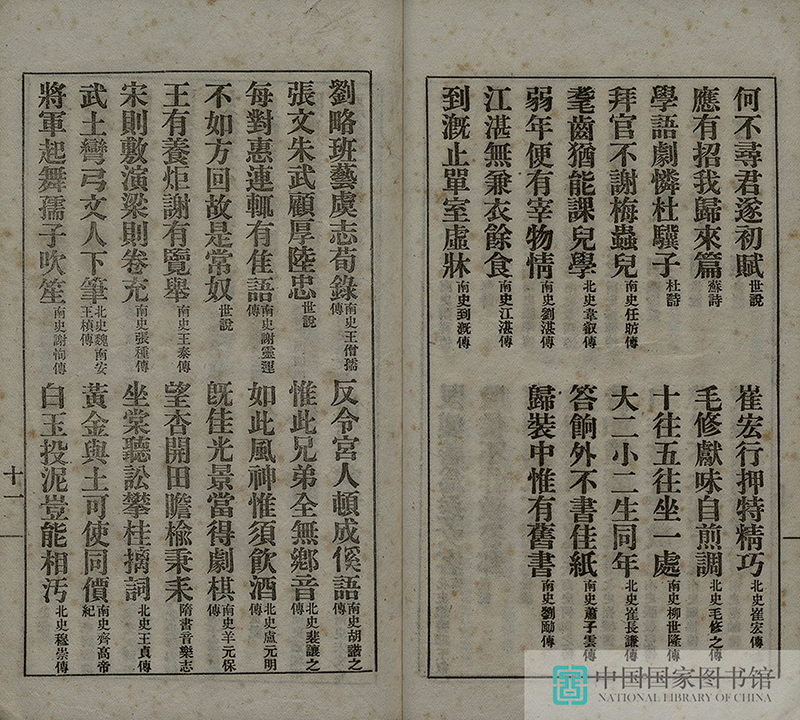 何不尋君遂初賦世說 崔宏行押特精巧北史崔宏傳
應有招我歸來篇蘇詩 毛修獻味自煎調北史毛修之傳
學語劇憐杜驥子杜詩 十往五往坐一處南史柳世隆傳
拜官不謝梅蟲兒南史任昉傳 大二小二生同年北史崔長謙傳
耄齒猶能課兒學北史韋叡傳 答餉外不書佳紙南史蕭子雲傳
弱年便有宰物情南史劉湛傳 歸裝中惟有舊書南史劉勔傳
江湛無兼衣餘食南史江湛傳
到溉止單室虛牀南史到溉傳
劉略班藝虞志荀錄南史王僧孺傳 反令宮人頓成傒語南史胡諧之傳
張文朱武顧厚陸忠世說 惟此兄弟全無鄉音北史裴讓之傳
每對惠連輒有佳語南史謝靈運傳 如此風神惟須飲酒北史盧元明傳
不如方回故是常奴世說 旣佳光景當得劇棋南史羊元保傳
王有養炬謝有覽舉南史王泰傳 望杏開田瞻榆秉耒隋書音樂志
宋則敷演梁則卷充南史張種傳 坐棠聽訟攀桂摛詞北史王貞傳
武士彎弓文人下筆北史魏南安王楨傳 黃金與土可使同價南史齊高帝紀
將軍起舞孺子吹笙南史謝恂傳 白玉投泥豈能相汚北史穆崇傳
十一
中国国家图书馆
NATIONAL LIBRARY OF CHINA